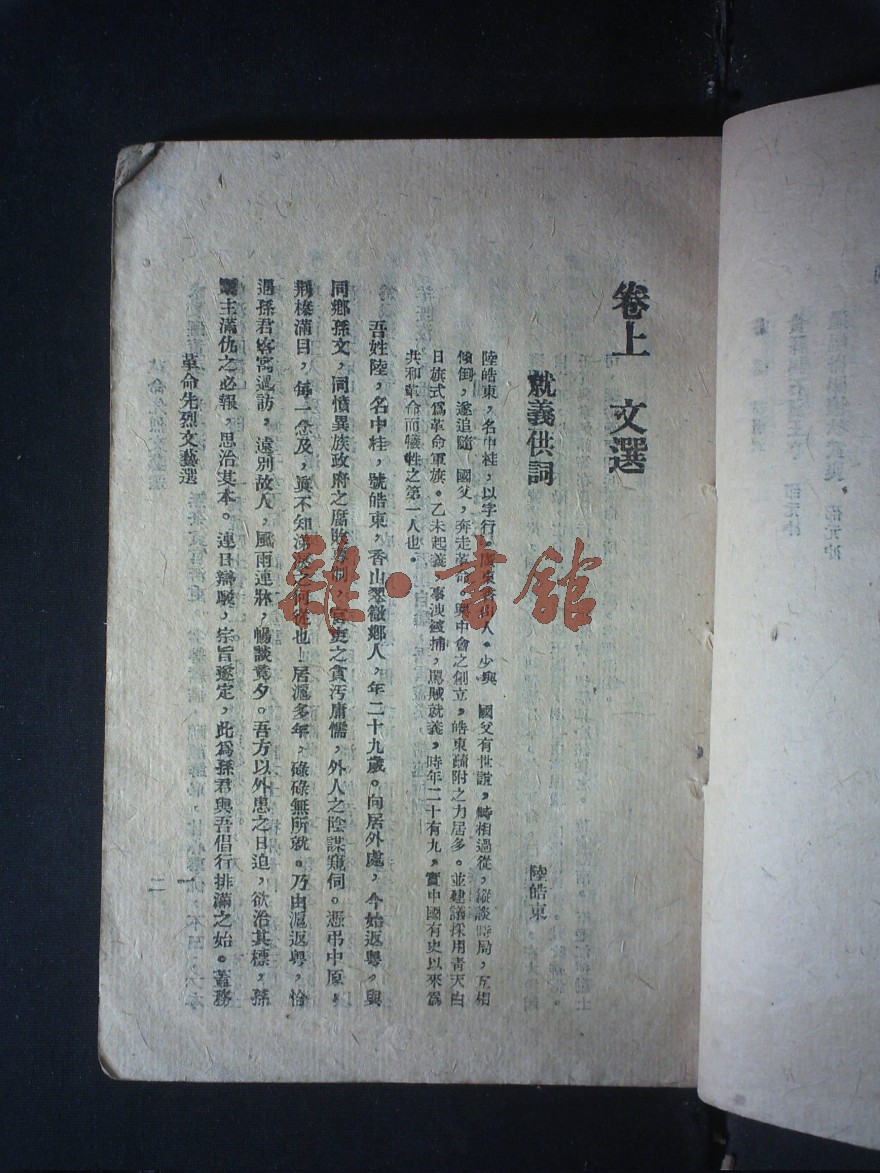 卷上　文選
就義供詞
陸皓東
陸皓東，名中桂，以字行。廣東香山人。少與　國父有世誼，時相過從，縱談時局，互相
傾倒，遂追隨　國父，奔走革命，興中會之創立，皓東疏附之力居多。並建議採用青天白
日旗式爲革命軍旗。乙未起義，事洩被捕，罵賊就義，時年二十有九，實中國有史以來爲
共和革命而犧牲之第一人也。
吾姓陸，名中桂，號皓東，香山翠微鄉人，年二十九歲。向居外處，今始返粵，與
同鄉孫文，同憤異族政府之腐敗專制，官吏之貪汚庸懦，外人之陰謀窺伺。憑弔中原，
荆榛滿目，每一念及，眞不知涕淚之何從也！居滬多年，碌碌無所就。乃由滬返粵，恰
遇孫君客寓過訪，遠別故人，風雨連牀，暢談竟夕。吾方以外患之日迫，欲治其標，孫
則主滿仇之必報，思治其本。連日辯駁，宗旨遂定，此爲孫君與吾倡行排滿之始。蓋務
革命先烈文藝選
一
雜·書館
邵元冲
邵元冲